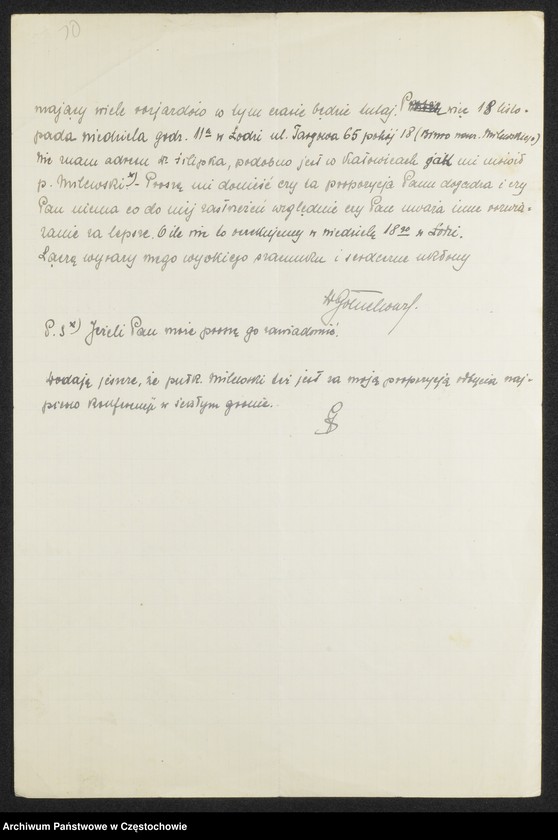 10
mający wiele rozjazdów w tym czasie będzie tutaj. więc 18 listo-
pada niedziela godz. 11ª w Łodzi ul. Targowa 65 pokój 18 (Biuro Milewskiego)
Nie znam adresu podobno jest w Katowicach jak mi mówił
p. Milewski x)- Proszę mi donieść czy ta propozycja Panu dogadza i czy
Pan niema co do niej zastrzeżeń względnie czy Pan uważa inne rozwią-
zanie za lepsze. O ile nie to oczekujemy w niedzielę 18 w Łodzi.
Łączę wyrazy mego wysokiego szacunku i serdeczne ukłony
P.S x) Jeżeli Pan może proszę go zawiadomić.
Dodaję jeszcze, że pułk. Milewski też jest za moją propozycją odbycia naj-
pierw konferencji w ścisłym gronie.
Archiwum Państwowe w Częstochowie